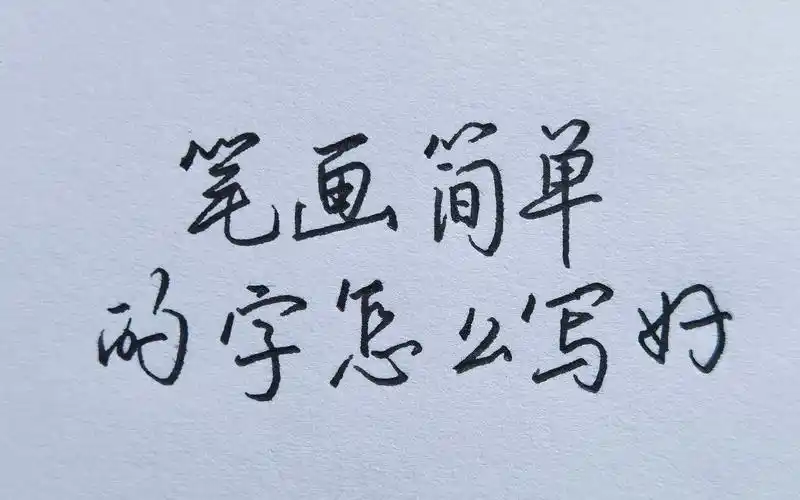 笔画简单
的字怎么写好